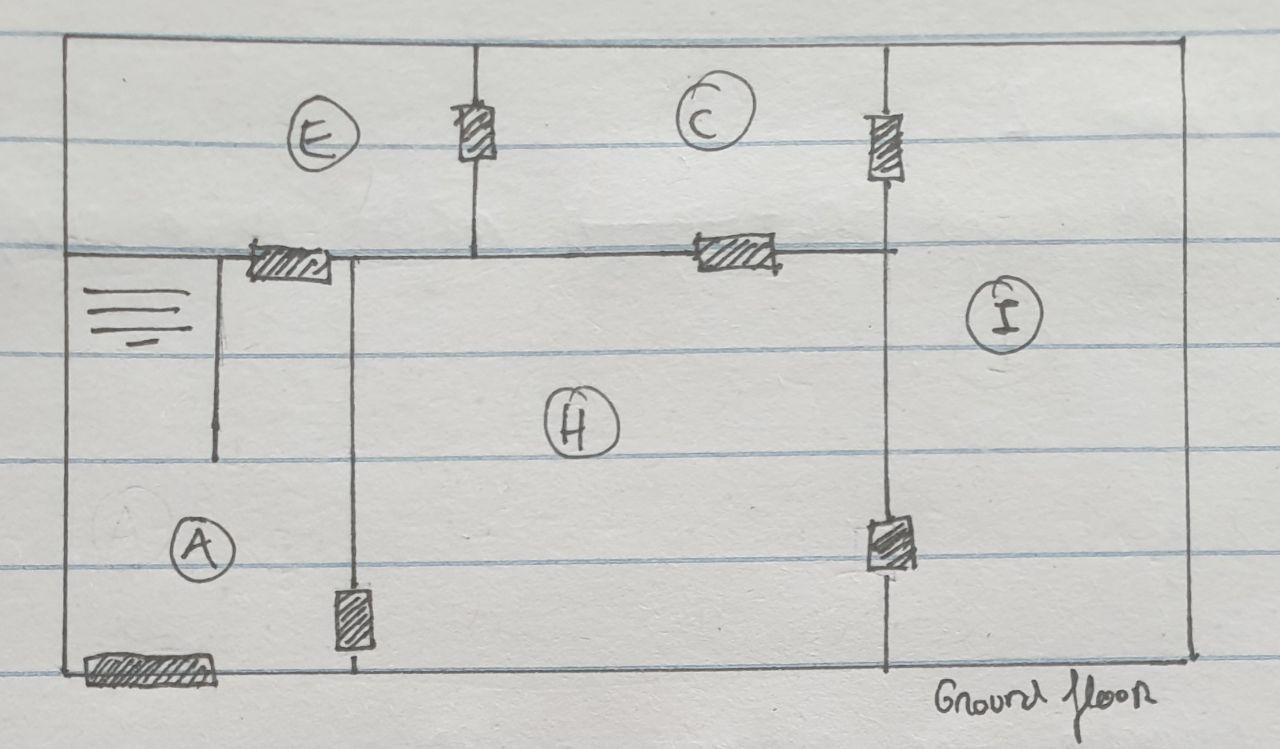 E C
I
H
A
Ground floor